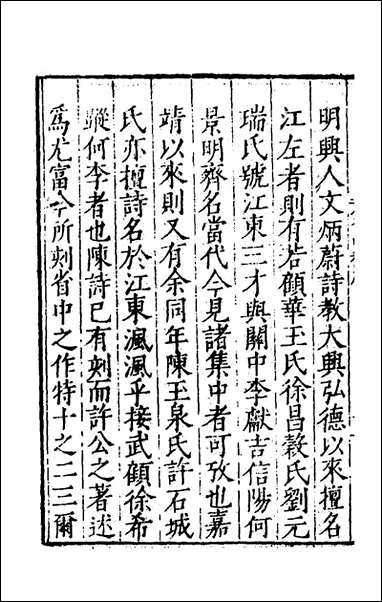 明興人文炳蔚詩教大興弘德以來擅名
江左者則有若顧華王氏徐昌穀氏劉元
瑞氏號江東三才與關中李獻吉信陽何
景明齊名當代今見諸集中者可攷也嘉
靖以來則又有余同年陳玉泉氏許石城
氏亦擅詩名於江東渢渢乎接武顧徐希
蹤何李者也陳詩已有刻而許公之著述
為尤富今所刻省中之作特十之二三爾